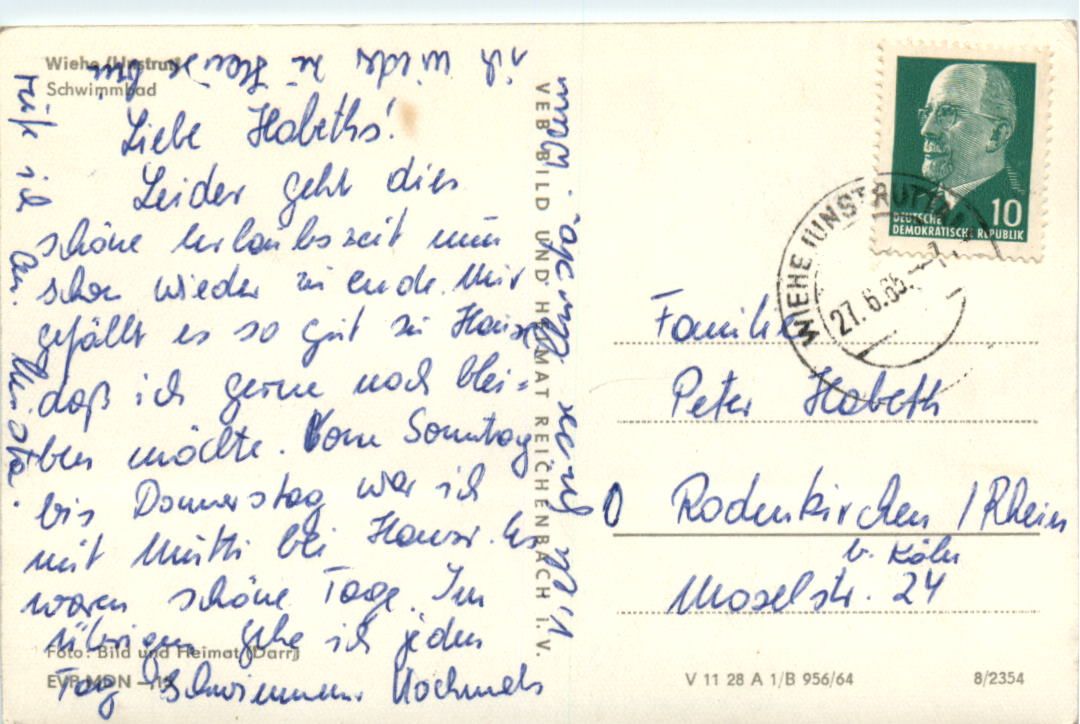 Wiehe (Unstrut)
Schwimmbad
Liebe Habeths!
Leider geht dies
schöne Urlaubszeit nun
schon wieder zu ende. Mir
gefällt es so gut zu Hause
daß ich gerne noch blei=
ben möchte. Vom Sonntag
bis Donnerstag war ich
mit Mutti bei Hannar. Es
waren schöne Tage. Im
übrigen gehe ich jeden
Tag Schwimmen. Nochmals
viele Grüße
wenn
ich wieder zu Hause bin
rufe ich
an.
Christa.
Foto: Bild und Heimat (Darr)
EVP MDN
VEB BILD UND HEIMAT REICHENBACH I. V.
DEUTSCHE
DEMOKRATISCHE REPUBLIK
10
WIEHE (UNSTRUT)
27.6.65.-7
Familie
Peter Habeth
Rodenkirchen / Rhein
b. Köln
Moselstr. 24
V 11 28 A 1/B 956/64
8/2354